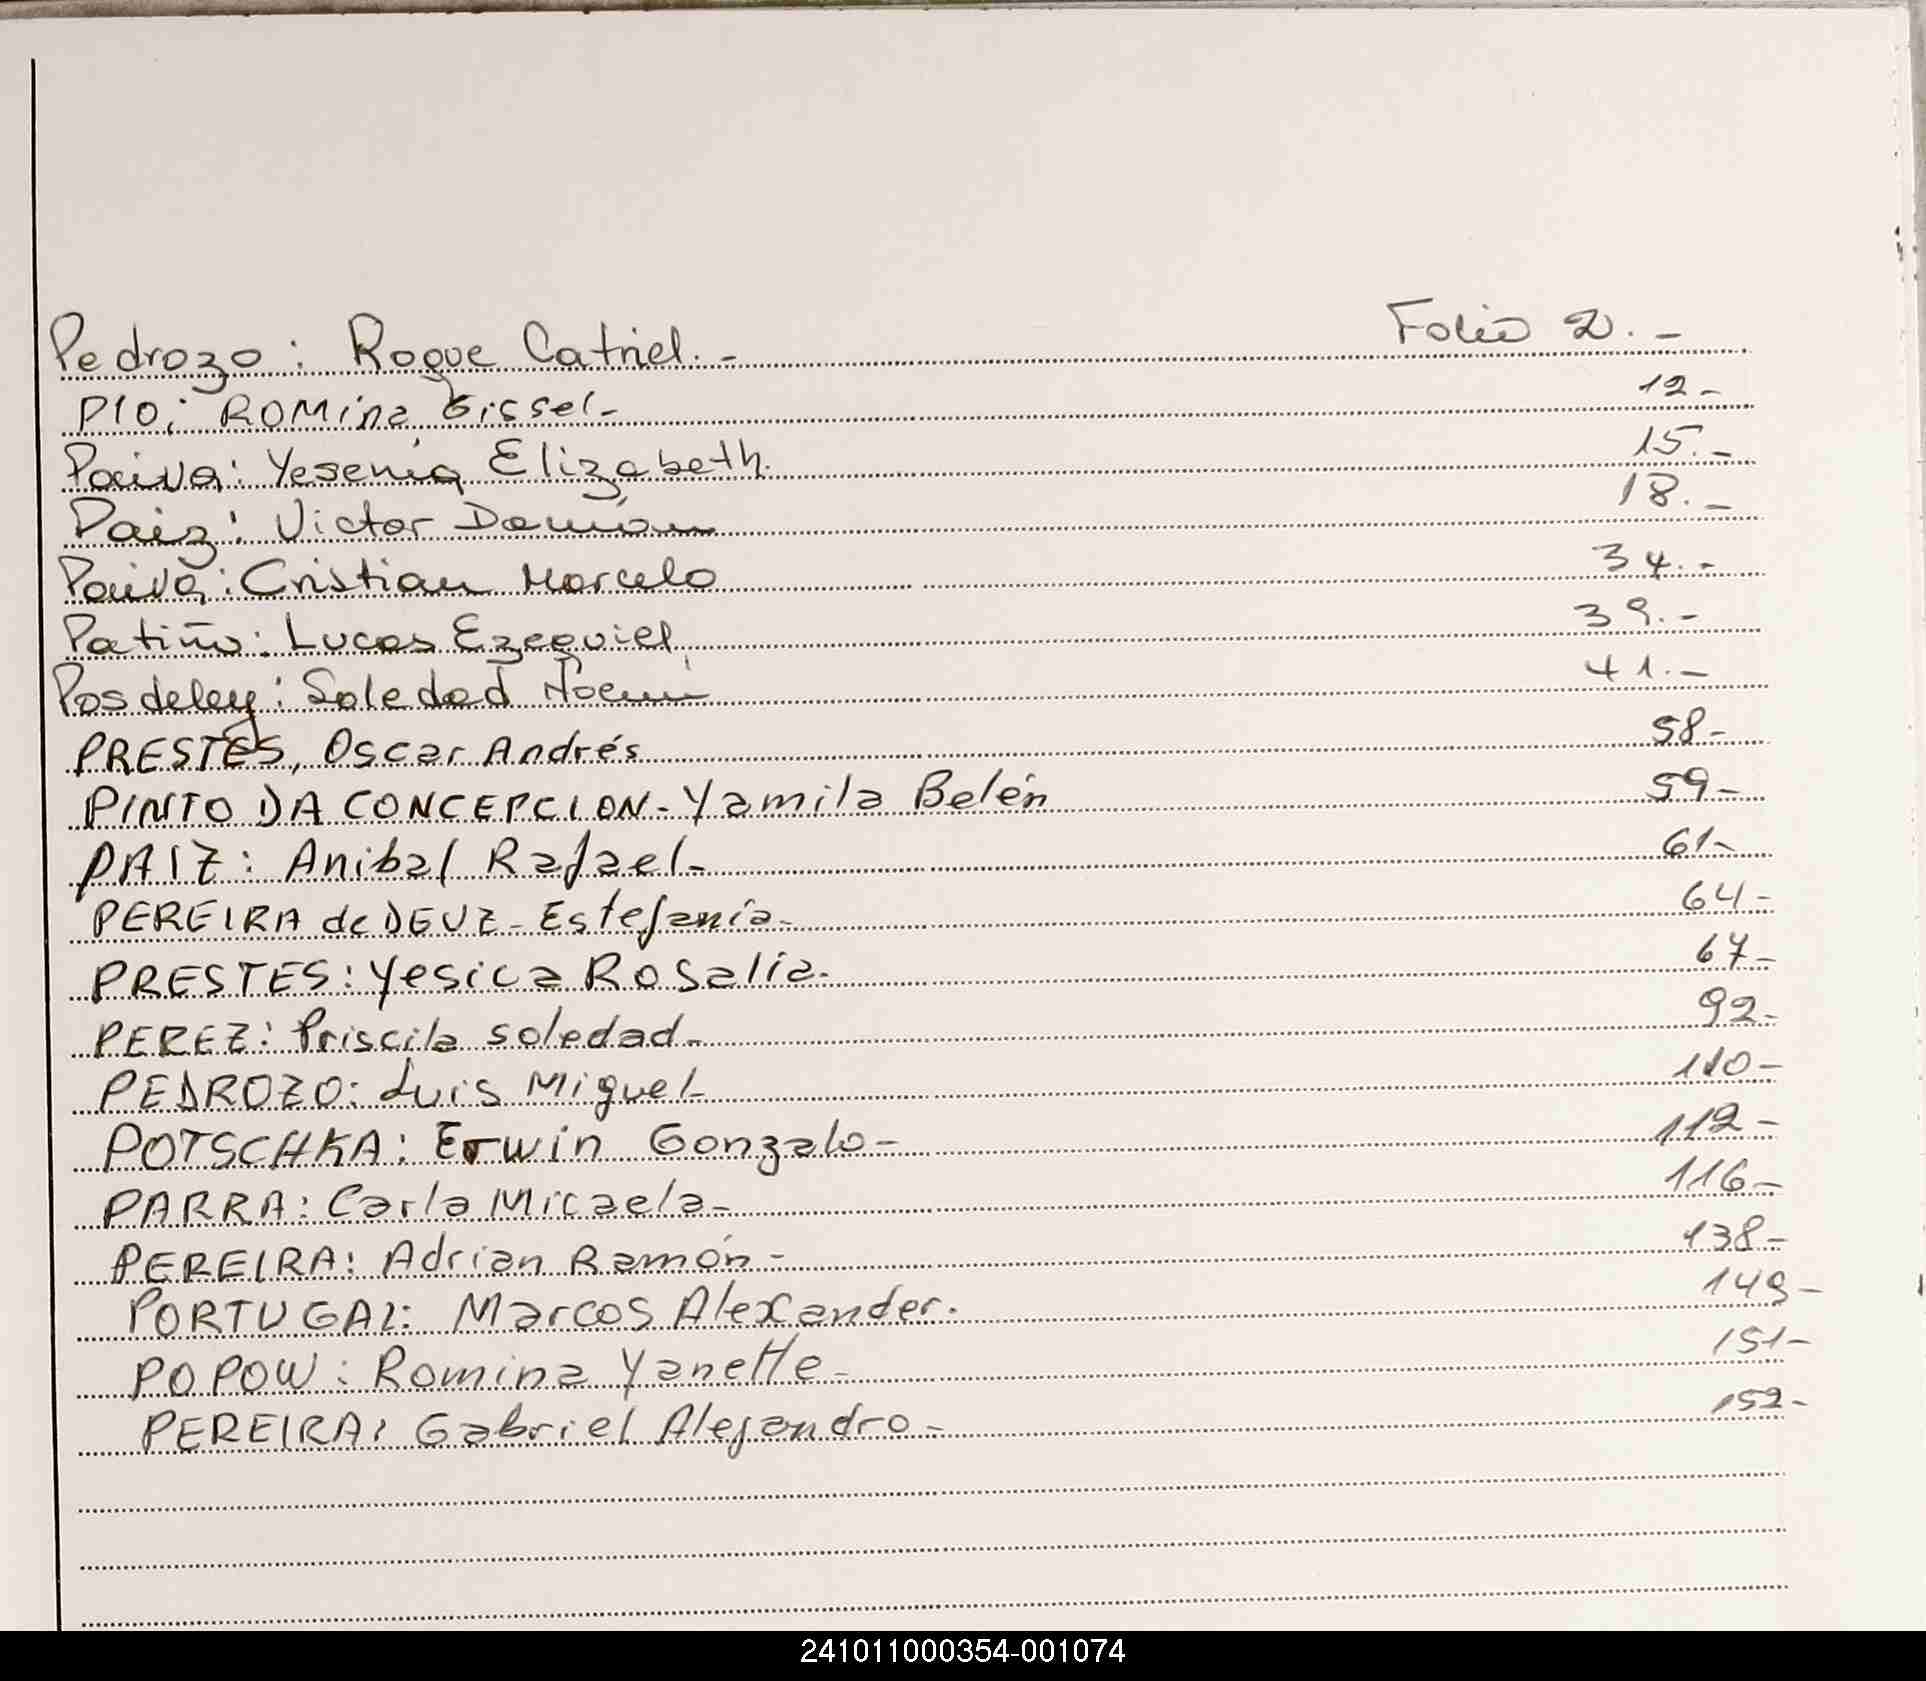 Pedrozo: Roque Catriel.- Folio 2.-
PIO: ROMina Gissel- 12-
Paiva: Yesenia Elizabeth. 15.-
Paiz: Victor Damián 18.-
Paiva: Cristian Marcelo 34.-
Patiño: Lucas Ezequiel 39.-
Posdeley: Soledad Noemi 41.-
PRESTES, Oscar Andrés 58-
PINTO DA CONCEPCION- Yamila Belén 59-
PAIZ: Anibal Rafael- 61-
PEREIRA de DEUZ- Estefanía- 64-
PRESTES: Yesica Rosalia- 67-
PEREZ: Priscila soledad- 92-
PEDROZO: Luis Miguel- 110-
POTSCHKA: Erwin Gonzalo- 112-
PARRA: Carla Micaela- 116-
PEREIRA: Adrian Ramón- 138-
PORTUGAL: Marcos Alexander. 149-
POPOW: Romina Yanette- 151-
PEREIRA: Gabriel Alejandro- 152-
241011000354-001074